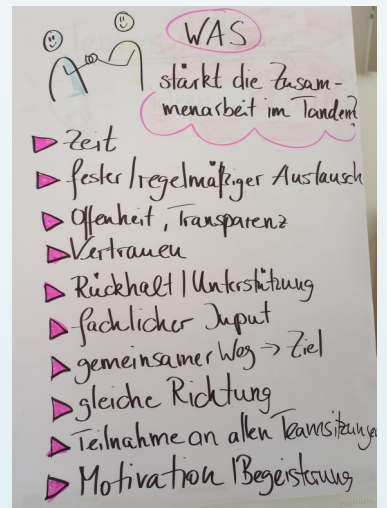 WAS
stärkt die Zusam-
menarbeit im Tandem?
Zeit
fester/regelmäßiger Austausch
Offenheit, Transparenz
Vertrauen
Rückhalt | Unterstützung
fachlicher Input
gemeinsamer Weg → Ziel
gleiche Richtung
Teilnahme an allen Teamsitzungen
Motivation | Begeisterung